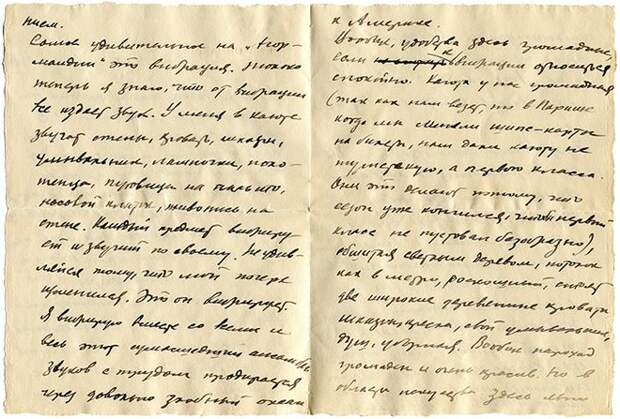 нием.
Самое удивительное на „Нор-
мандии" это вибрация. Только
теперь я знаю, что от вибрации
всё издает звук. У меня в каюте
звучат стены, кровать, шкафы,
умывальник, лампочки, поло-
тенца, пуговицы на пальто,
носовой платок, живопись на
стене. Каждый предмет вибриру-
ет и звучит по своему. Не удив-
ляйся тому, что мой почерк
изменился. Это он вибрирует.
Я вибрирую вместе со всеми и
весь этот сумасшедший ансамбль
звуков с трудом продирается
через довольно злобный океан
к Америке.
Вообще, удобства здесь громадные,
если к вибрации относиться
спокойно. Каюта у нас громадная
(так как нам везет, то в Париже
когда мы меняли шипс-карты
на билеты, нам дали каюту не
туристскую, а первого класса.
Они это делают потому, что
сезон уже кончился, чтоб первый
класс не пустовал безобразно)
обшитая светлым деревом, потолок
как в метро, роскошный, стоят
две широкие деревянные кровати
шкафы, кресла, свой умывальник,
душ, уборная. Вообще пароход
громаден и очень красив. Но в
области искусства здесь явно